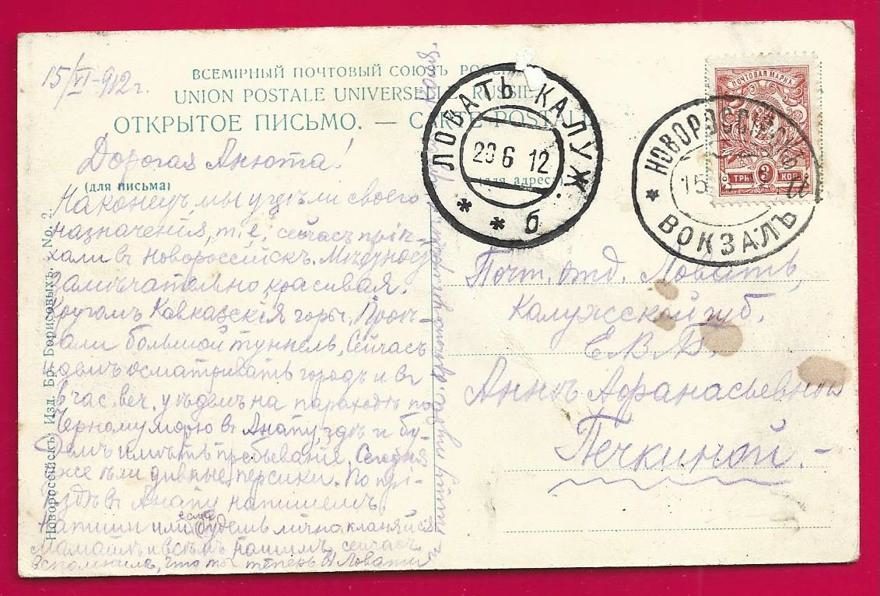 15/VI-912 г.
ВСЕМІРНЫЙ ПОЧТОВЫЙ СОЮЗЪ РОС
UNION POSTALE UNIVERSELLE RUSSIE
ОТКРЫТОЕ ПИСЬМО. — CARTE POSTALE
Дорогая Анюта!
(для письма)
Наконецъ мы у цѣли своего
назначенія, т.е. сейчасъ пріѣ-
хали въ Новороссійскъ. Мѣстность
замѣчательно красивая.
Кругомъ Кавказскія горы, Проѣз-
жали большой туннель, Сейчасъ
идемъ осматривать городъ и въ
час. веч. уѣдемъ на пароходѣ по
Черному морю въ Анапу, гдѣ и бу-
демъ имѣть пребываніе. Сегодня
же ѣли дивные персики. По прі-
ѣздѣ въ Анапу напишемъ.
Напиши или если будешь лично, кланяйся
Мамашѣ и всѣмъ нашимъ, сейчасъ
вспомнила, что ты теперь въ Ловати
Новороссійскъ. Изд. Бр. Борисовыхъ. No. 2.
ЛОВАТЬ КАЛУЖ.
20 6 12
* * б
(для адреса)
ПОЧТОВАЯ МАРКА
3
ТРИ КОП.
НОВОРОССІЙСКЪ
15
* ВОКЗАЛЪ
Почт. отд. Ловать,
Калужской губ.
Е.В.Б.
Аннѣ Афанасьевнѣ
Печкиной.-